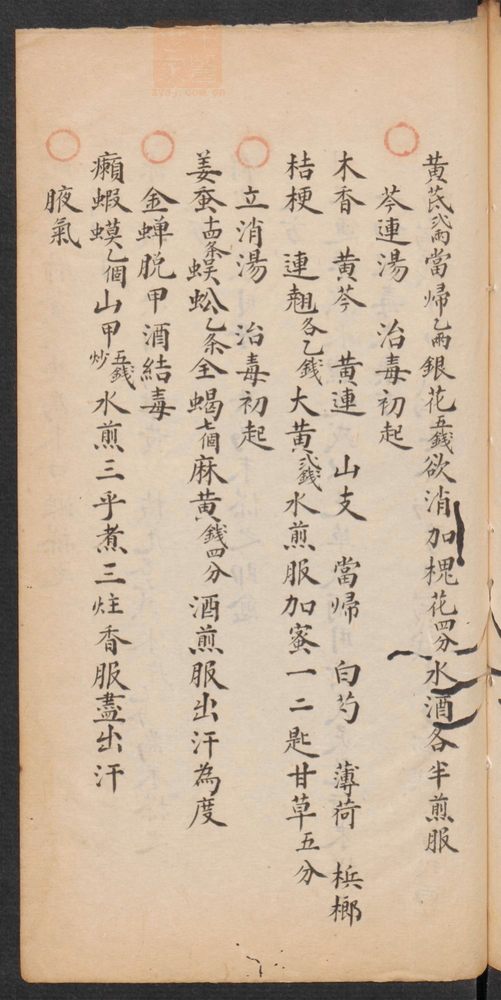 黃芪弍兩當帰乙兩銀花五錢欲消加槐花四分水酒各半煎服
芩連湯 治毒初起
木香 黃芩 黃連 山支 當帰 白芍 薄荷 槟榔
桔梗 連翹各乙錢大黃弍錢水煎服加蜜一二匙甘草五分
立消湯 治毒初起
姜蚕十四条蜈蚣乙条全蝎七個麻黃錢四分酒煎服出汗為度
金蝉脱甲酒結毒
癩蝦蟆乙個山甲五錢炒水煎三乎煮三炷香服蓋出汗
腋氣